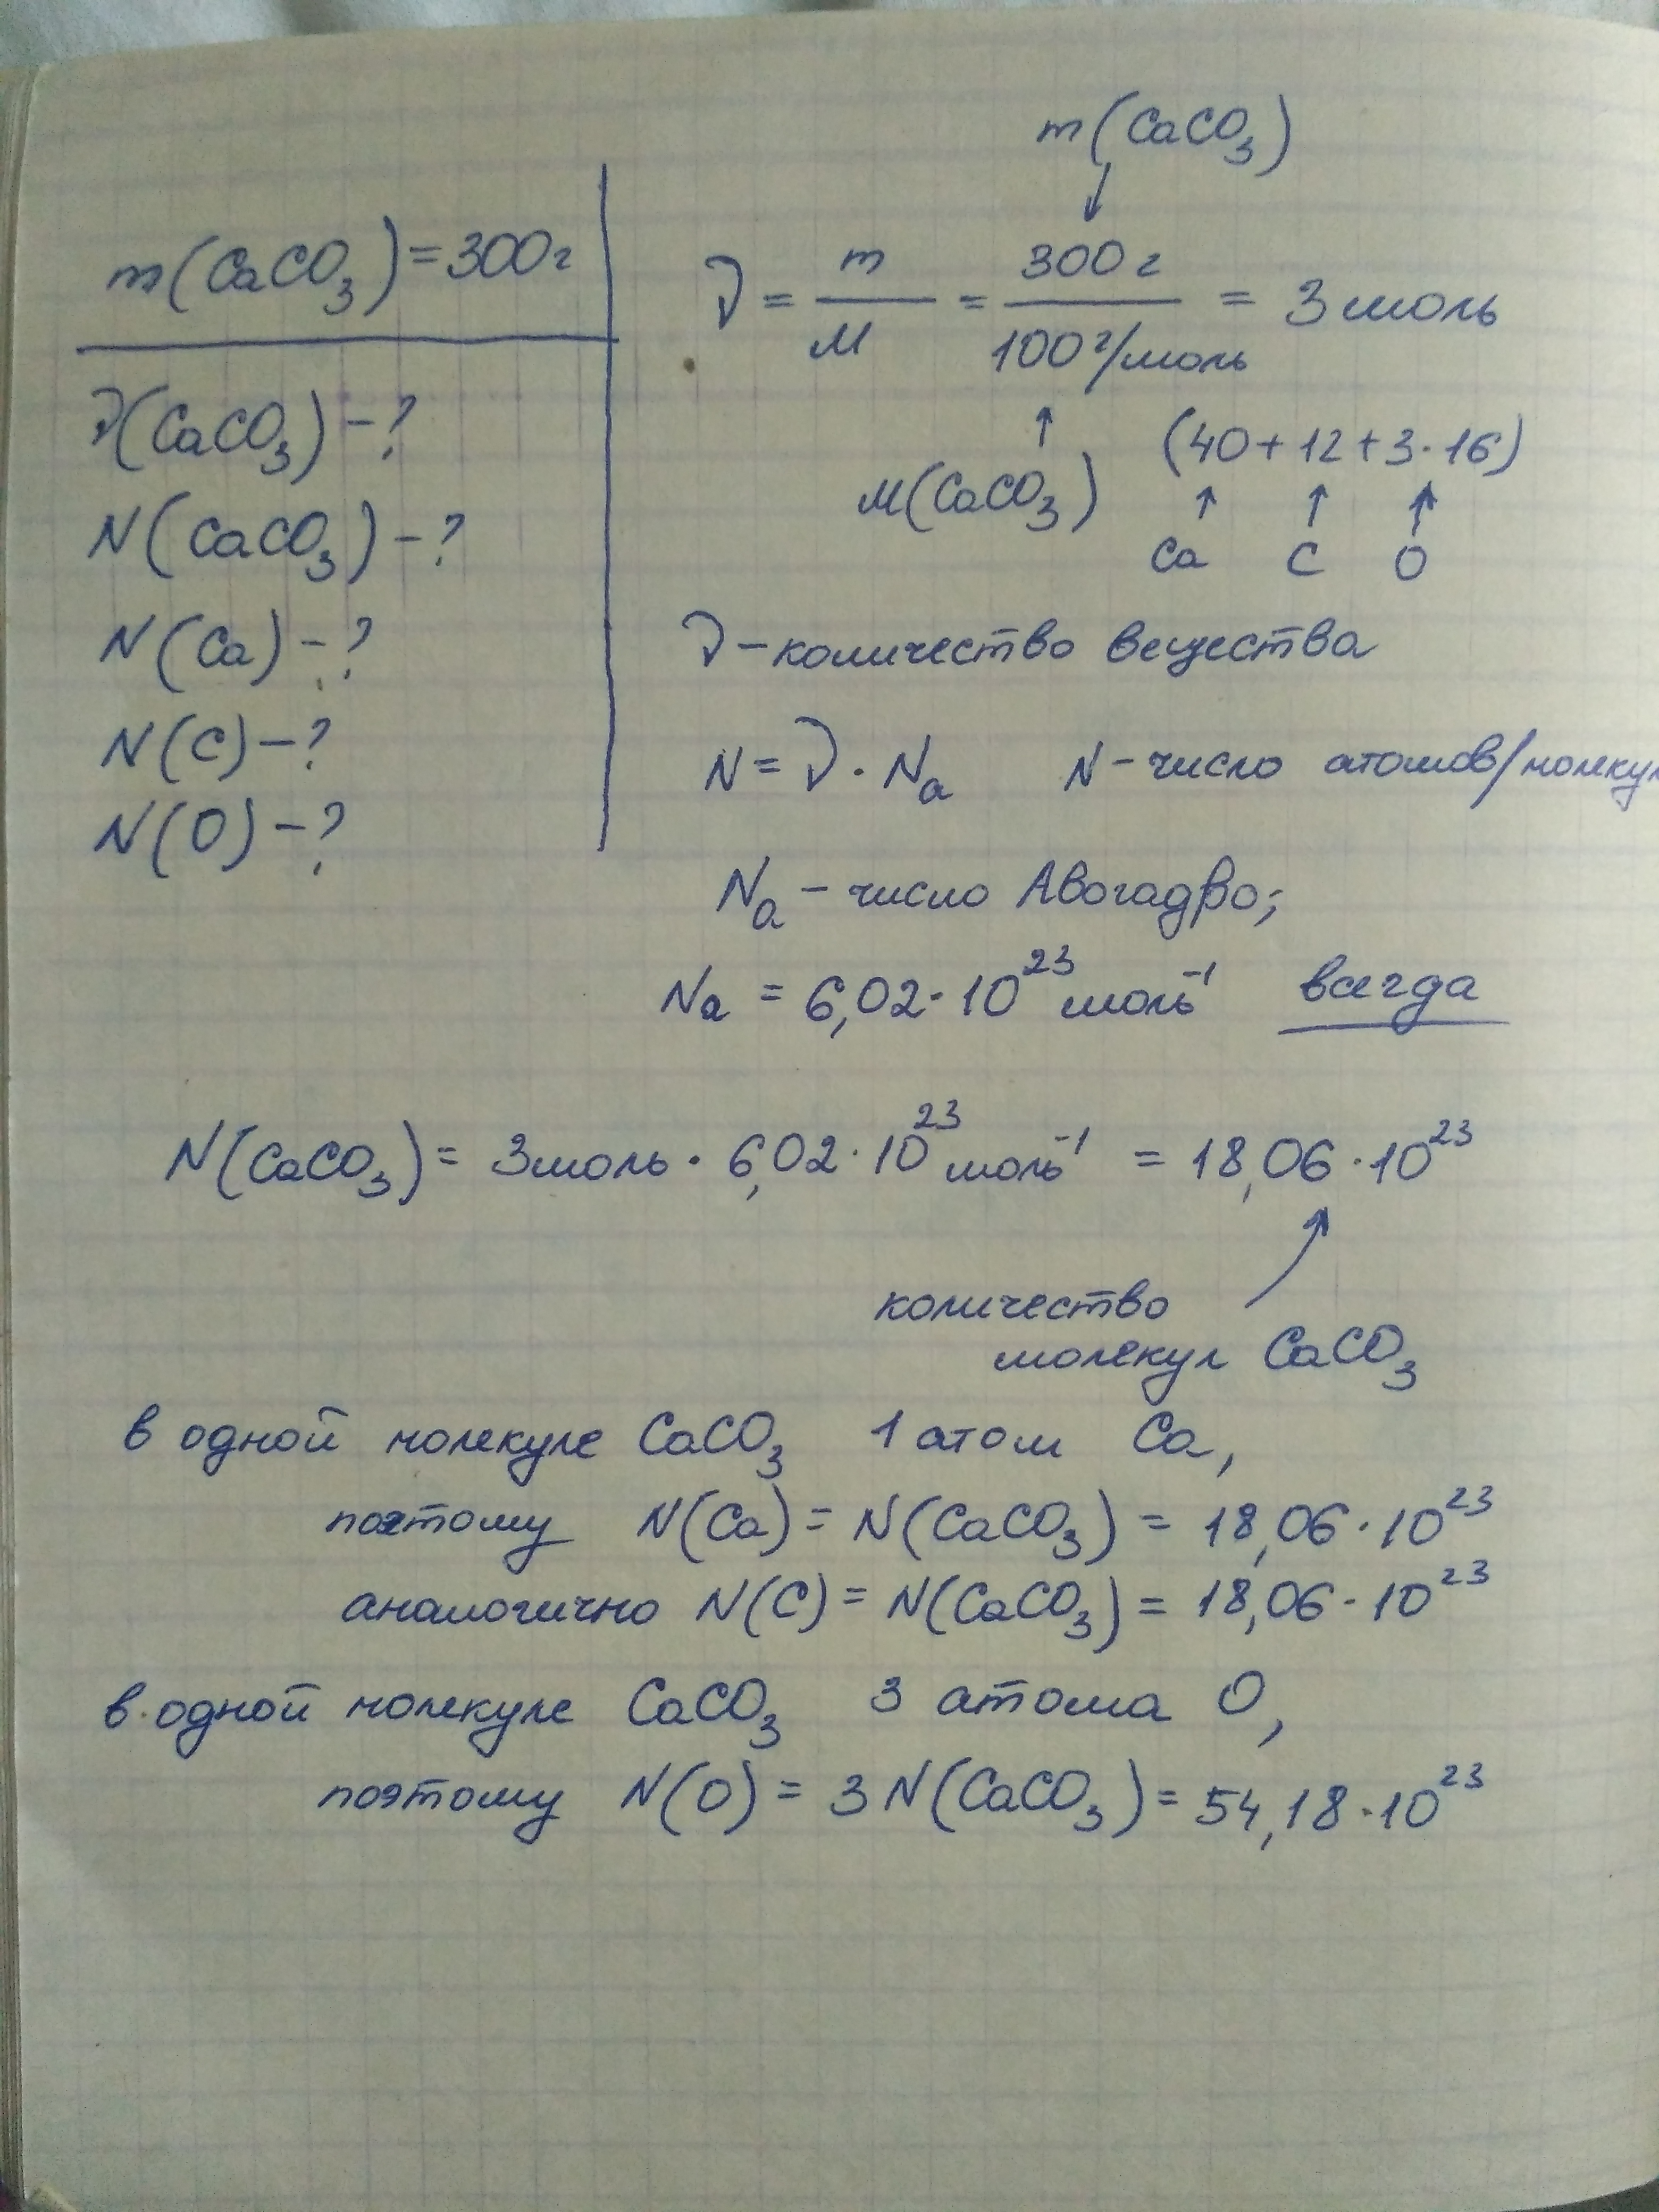 m(CaCO₃) = 300г
ν(CaCO₃) – ?
N(CaCO₃) – ?
N(Ca) – ?
N(C) – ?
N(O) – ?
m(CaCO₃)
↓
ν = m/M = 300 г / 100 г/моль = 3 моль
↑
M(CaCO₃) (40 + 12 + 3 · 16)
↑ ↑ ↑
Ca C O
ν – количество вещества
N = ν · Nₐ N – число атомов/молекул
Nₐ – число Авогадро;
Nₐ = 6,02 · 10²³ моль⁻¹ всегда
N(CaCO₃) = 3 моль · 6,02 · 10²³ моль⁻¹ = 18,06 · 10²³
количество
молекул CaCO₃
в одной молекуле CaCO₃ 1 атом Ca,
поэтому N(Ca) = N(CaCO₃) = 18,06 · 10²³
аналогично N(C) = N(CaCO₃) = 18,06 · 10²³
в одной молекуле CaCO₃ 3 атома O,
поэтому N(O) = 3 N(CaCO₃) = 54,18 · 10²³